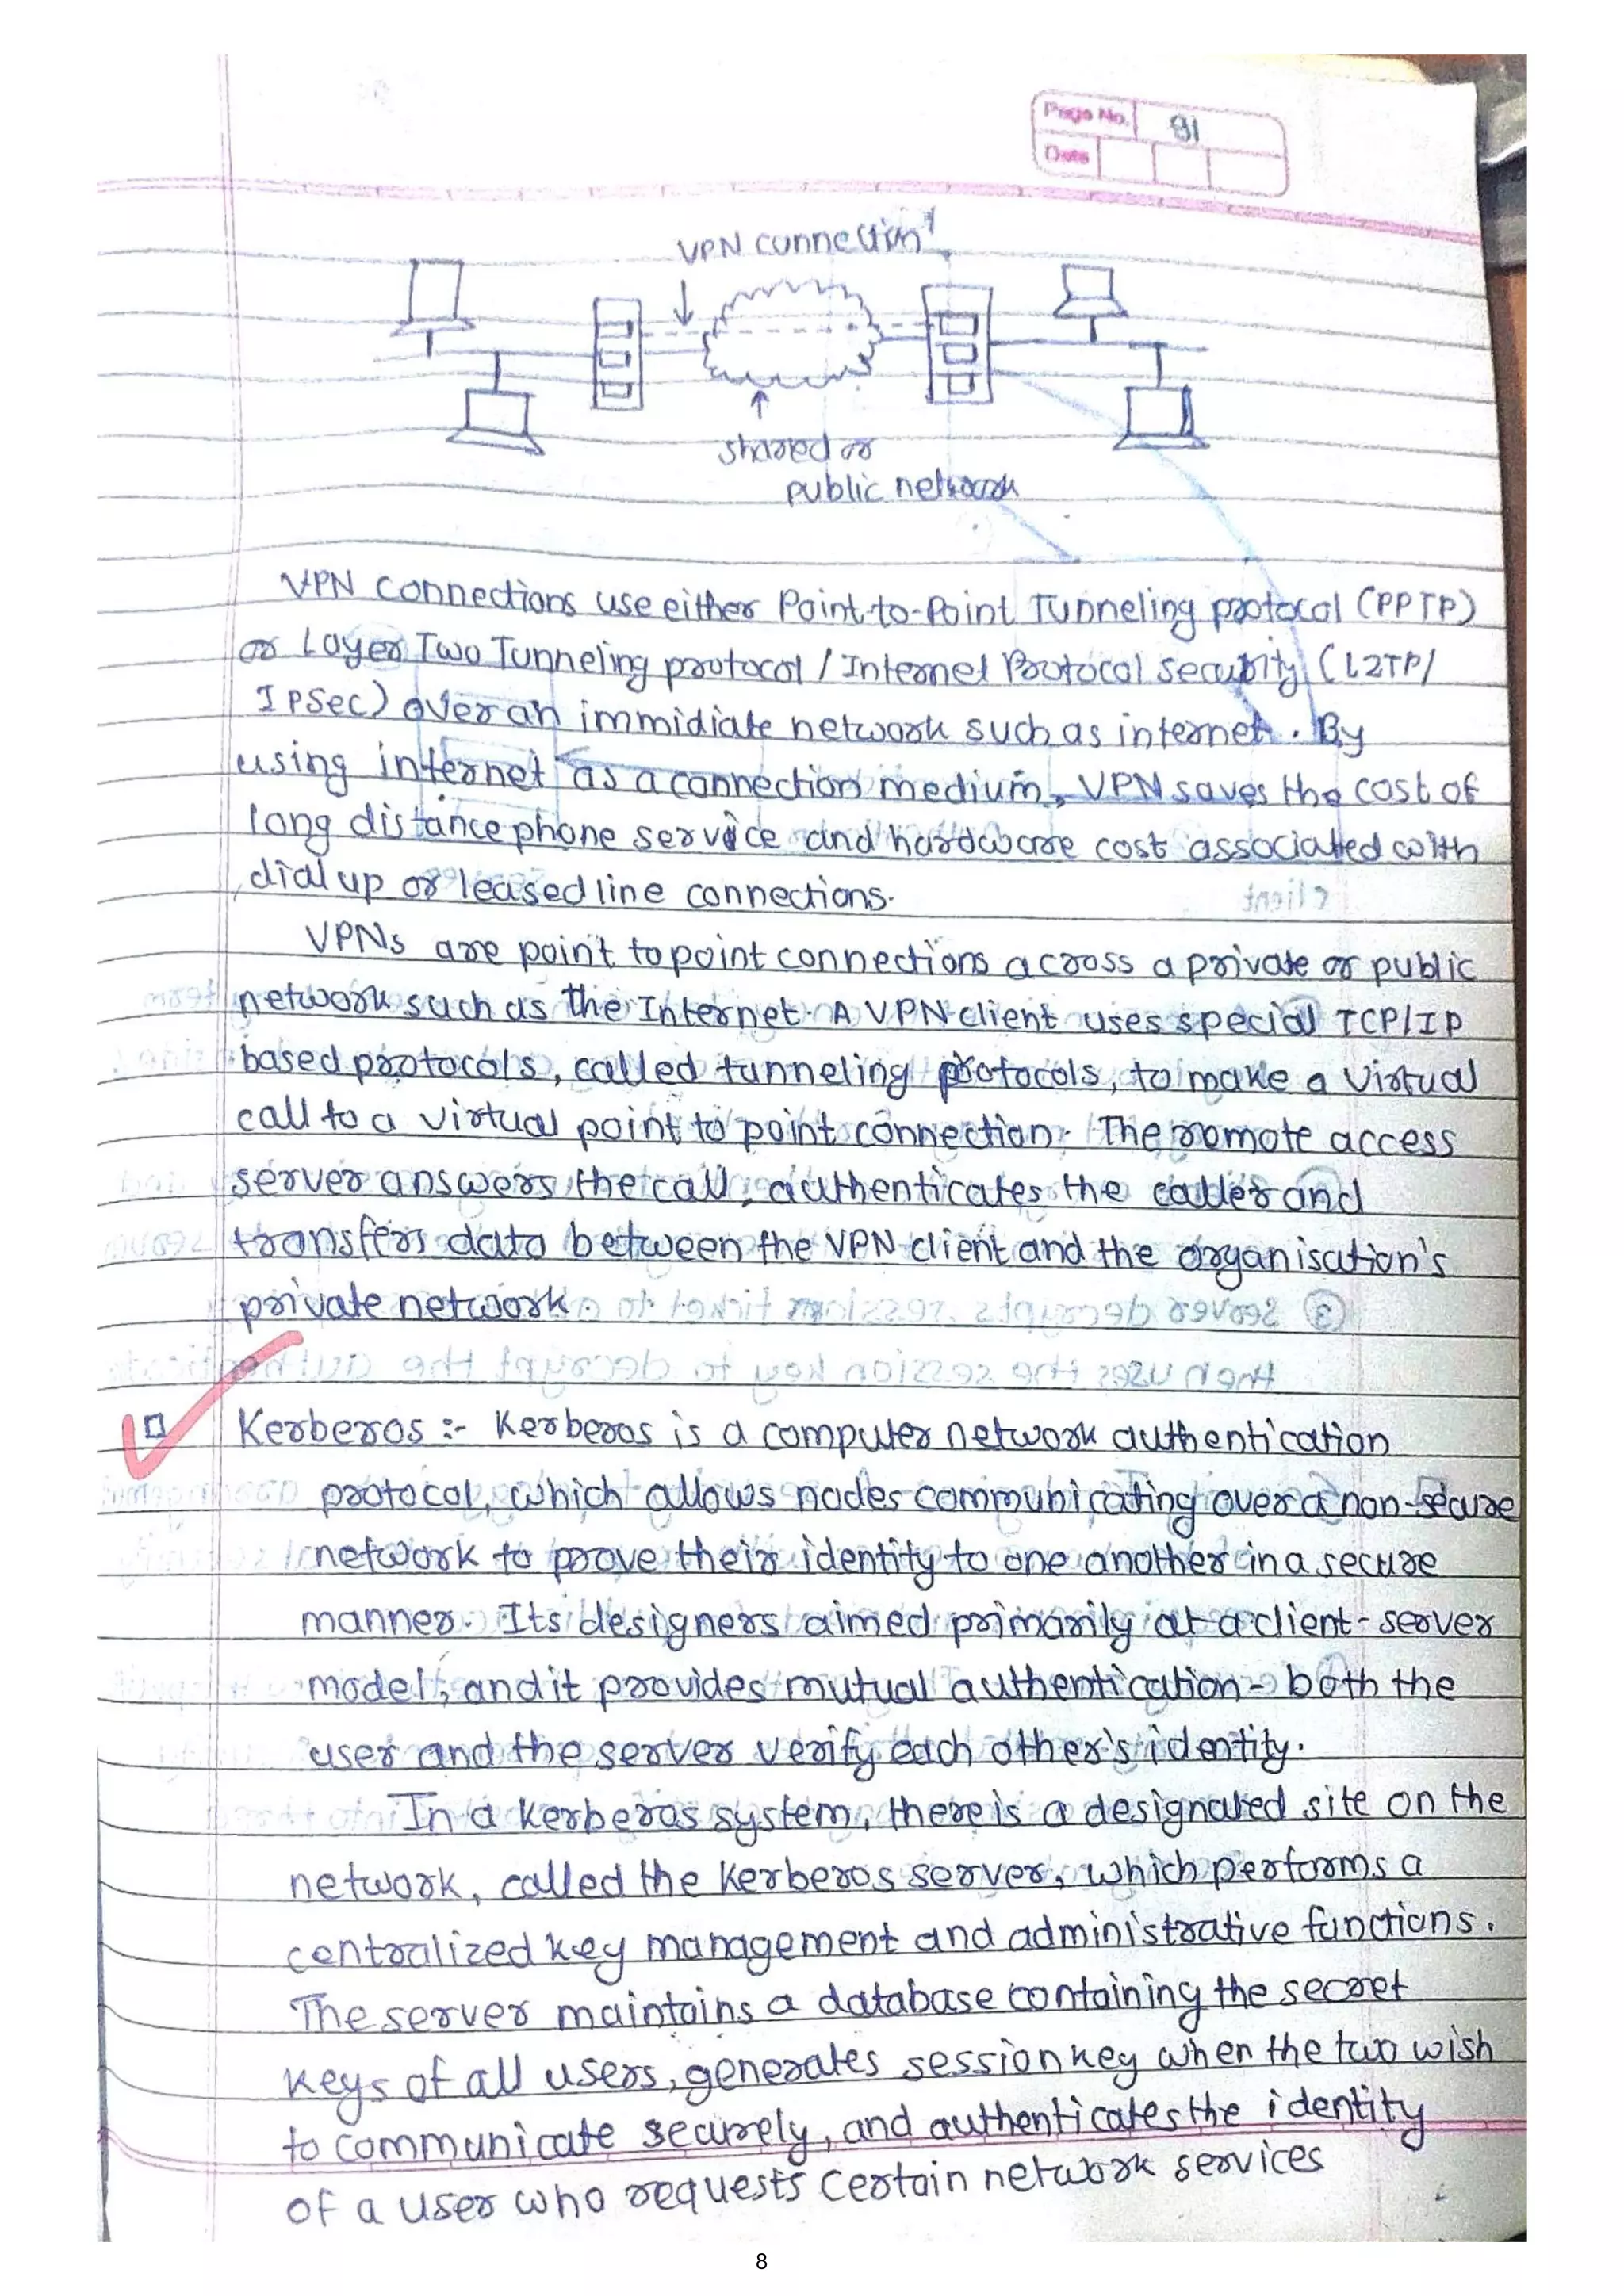 Page No. 91
Date
VPN connection
shared or
public network
VPN connections use either Point-to-Point Tunneling protocol (PPTP)
or Layer Two Tunneling protocol / Internet Protocol security (L2TP/
IPSec) over an immidiate network such as internet. By
using internet as a connection medium, VPN saves the cost of
long distance phone service and hardware cost associated with
dial up or leased line connections.
VPNs are point to point connections across a private or public
network such as the Internet. A VPN client uses special TCP/IP
based protocols, called tunneling protocols, to make a virtual
call to a virtual point to point connection. The remote access
server answers the call, authenticates the caller and
transfers data between the VPN client and the organisation's
private network.
Kerberos :- Kerberos is a computer network authentication
protocol, which allows nodes communicating over a non-secure
network to prove their identity to one another in a secure
manner. Its designers aimed primarily at a client-server
model, and it provides mutual authentication - both the
user and the server verify each other's identity.
In a Kerberos system, there is a designated site on the
network, called the Kerberos server, which performs a
centralized key management and administrative functions.
The server maintains a database containing the secret
keys of all users, generates session key when the two wish
to communicate securely, and authenticates the identity
of a user who requests certain network services
8